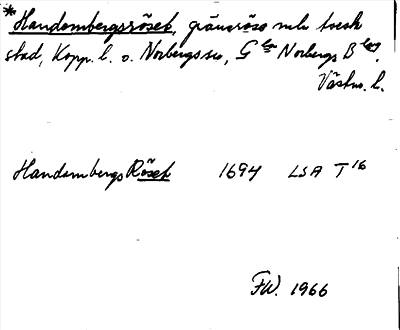 *Handombergsröset, gränsröse mln
stad, Kopp. l. o. Norbergs sn, G la Norbergs Blag.
Västm. l.
Handombergs Röset 1694 LSA T 16
FW. 1966